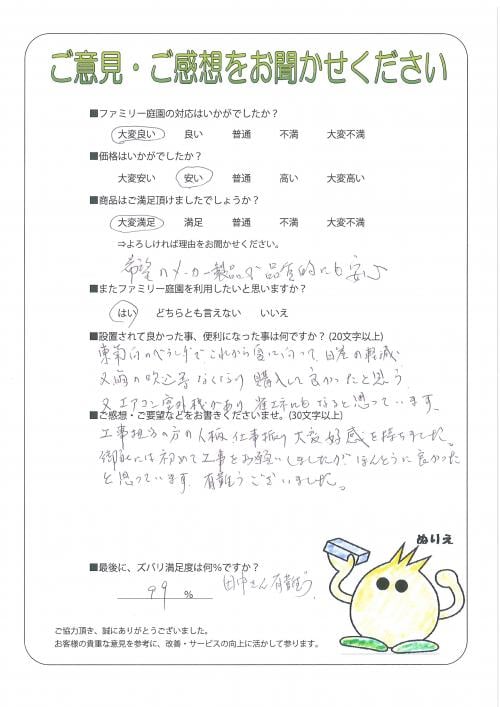 ご意見・ご感想をお聞かせください
■ファミリー庭園の対応はいかがでしたか？
大変良い 良い 普通 不満 大変不満
■価格はいかがでしたか？
大変安い 安い 普通 高い 大変高い
■商品はご満足頂けましたでしょうか？
大変満足 満足 普通 不満 大変不満
⇒よろしければ理由をお聞かせください。
希望のメーカー製品が品質的にも安心
■またファミリー庭園を利用したいと思いますか？
はい どちらとも言えない いいえ
■設置されて良かった事、便利になった事は何ですか？(20文字以上)
東南向のベランダでこれから夏に向って、日差の軽減
又雨の吹込等なくなり購入して良かったと思う
又エアコン室外機があり省エネにもなると思っています。
■ご感想・ご要望などをお書きくださいませ。(30文字以上)
工事担当の方の人柄、仕事振り大変好感を持ちました。
御社には初めて工事をお願いしましたが、ほんとうに良かった
と思っています。有難うございました。
ぬりえ
■最後に、ズバリ満足度は何％ですか？
99 ％ 田中さん有難う
ご協力頂き、誠にありがとうございました。
お客様の貴重な意見を参考に、改善・サービスの向上に活かして参ります。